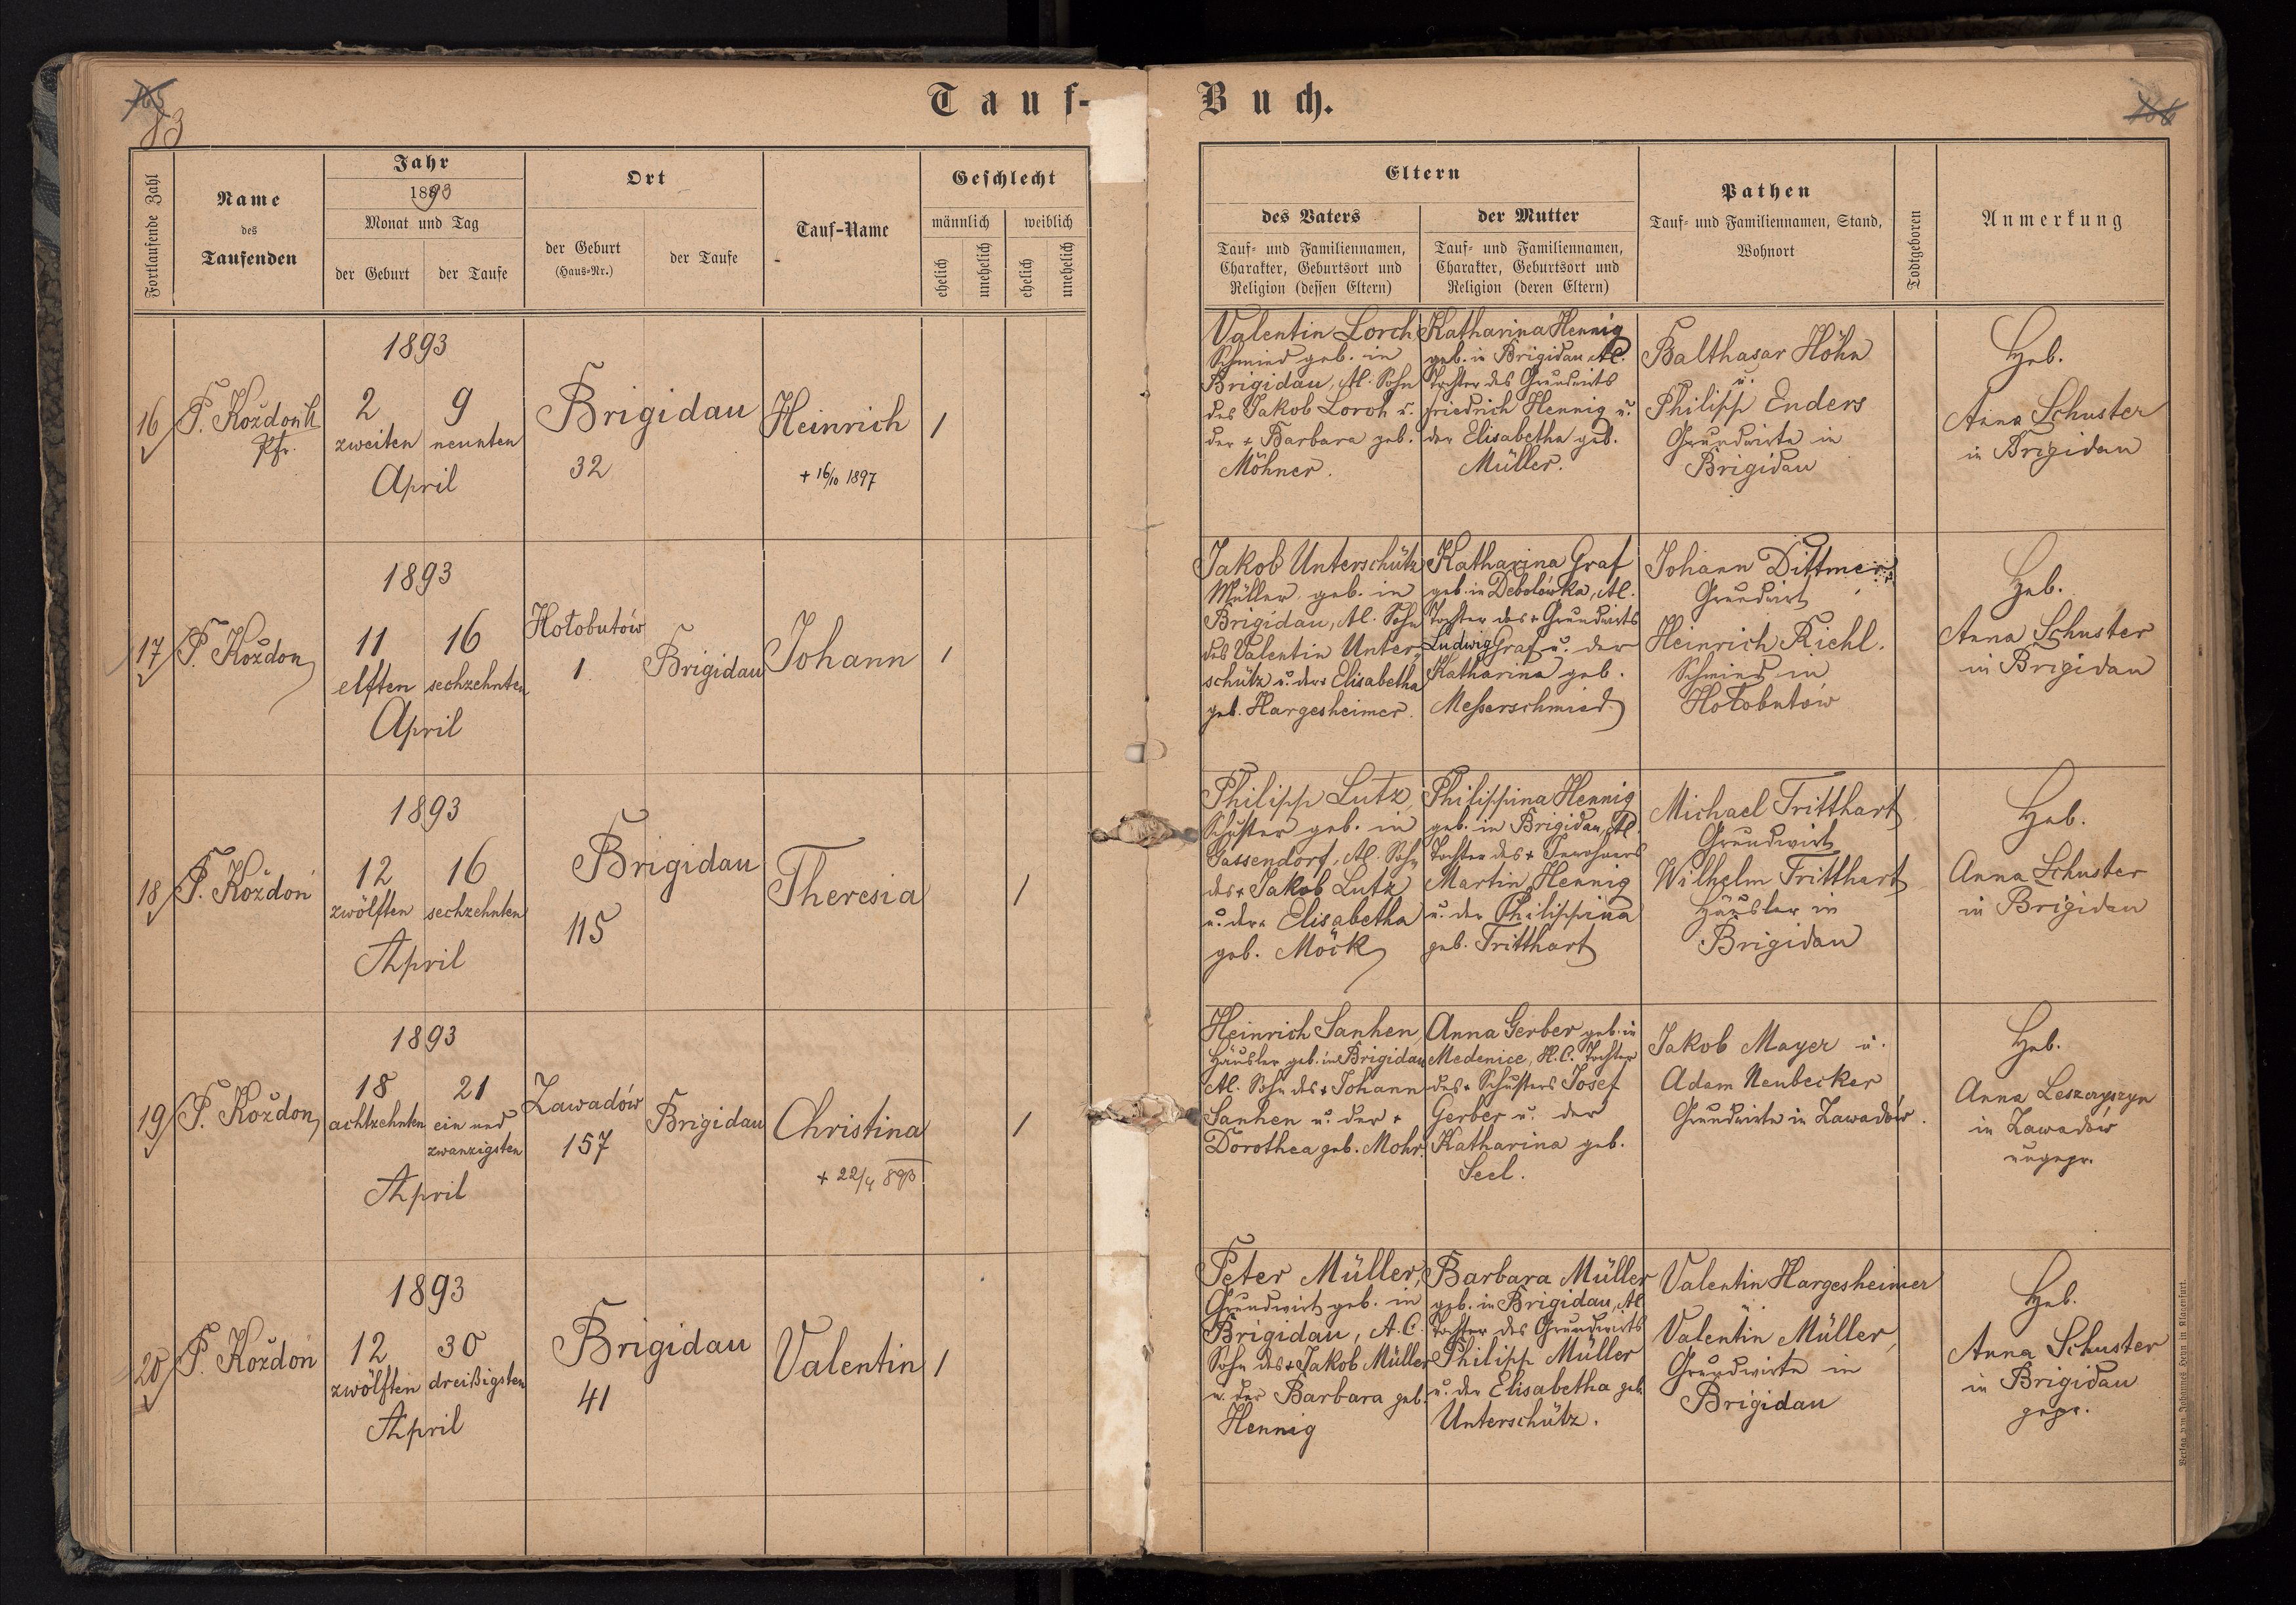 165
83
Tauf-
Buch.
166
Fortlaufende Zahl
Name
des
Taufenden
Jahr
1893
Monat und Tag
der Geburt
der Taufe
Ort
der Geburt
(Haus-Nr.)
der Taufe
Tauf-Name
Geschlecht
männlich
weiblich
ehelich
unehelich
ehelich
unehelich
Eltern
des Vaters
Tauf- und Familiennamen,
Charakter, Geburtsort und
Religion (dessen Eltern)
der Mutter
Tauf- und Familiennamen,
Charakter, Geburtsort und
Religion (deren Eltern)
Pathen
Tauf- und Familiennamen, Stand,
Wohnort
Todtgeboren
Anmerkung
16
P. Koždoń
Pfr.
1893
2
9
zweiten
neunten
April
Brigidau
32
Heinrich
+ 16/10 1897
1
Valentin Lorch
Schmied geb. in
Brigidau, Al. Sohn
des Jakob Lorch u.
der + Barbara geb.
Möhner.
Katharina Hennig
geb. in Brigidau Al.
Tochter des Grundwirts
Friedrich Hennig u.
der Elisabetha geb.
Müller.
Balthasar Höhn
u.
Philipp Enders
Grundwirte in
Brigidau
Heb.
Anna Schuster
in Brigidau
17
P. Koždoń
1893
11
16
elften
sechzehnten
April
Hołobutów
1
Brigidau
Johann
1
Jakob Unterschütz
Müller geb. in
Brigidau, Al. Sohn
des Valentin Unter-
schütz u. der + Elisabetha
geb. Hargesheimer.
Katharina Graf
geb. in Debolówka, Al.
Tochter des + Grundwirts
Ludwig Graf u. der
Katharina geb.
Messerschmied
Johann Dittmer
Grundwirt
Heinrich Richl.
Schmied in
Hołobutów
Heb.
Anna Schuster
in Brigidau
18
P. Koždoń
1893
12
16
zwölften
sechzehnten
April
Brigidau
115
Theresia
1
Philipp Lutz,
Schuster geb. in
Gassendorf, Al. Sohn
des + Jakob Lutz
u. der + Elisabetha
geb. Möck
Philippina Hennig
geb. in Brigidau, Al.
Tochter des + Inwohners
Martin Hennig
u. der Philippina
geb. Tritthart
Michael Tritthart
Grundwirt
Wilhelm Tritthart
Häusler in
Brigidau
Heb.
Anna Schuster
in Brigidau
19
P. Koždoń
1893
18
21
achtzehnten
ein und
zwanzigsten
April
Zawadów
157
Brigidau
Christina
+ 22/4 893
1
Heinrich Sanhen,
Häusler geb. in Brigidau
Al. Sohn des + Johann
Sanhen u. der +
Dorothea geb. Mohr.
Anna Gerber geb. in
Medenice, H.C. Tochter
des + Schusters Josef
Gerber u. der
Katharina geb.
Seel.
Jakob Mayer u.
Adam Neubecker
Grundwirte in Zawadów.
Heb.
Anna Leszczyszyn
in Zawadów
ungepr.
20
P. Koždoń
1893
12
30
zwölften
dreißigsten
April
Brigidau
41
Valentin
1
Peter Müller,
Grundwirt geb. in
Brigidau, A.C.
Sohn des + Jakob Müller
u. der Barbara geb.
Hennig
Barbara Müller
geb. in Brigidau, Al
Tochter des Grundwirts
Philipp Müller
u. der Elisabetha geb
Unterschütz.
Valentin Hargesheimer
Valentin Müller,
Grundwirte in
Brigidau
Heb.
Anna Schuster
in Brigidau
gepr.
Verlag von Johannes Heyn in Klagenfurt.